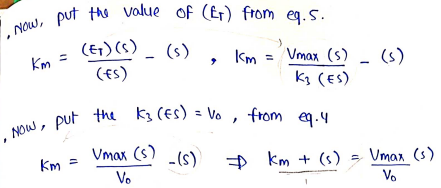 , Now, put the value of (ET) from eq.5.
Km = (ET)(S) / (ES) - (S) , Km = Vmax (S) / K3 (ES) - (S)
, Now, put the K3 (ES) = Vo , from eq.4
Km = Vmax (S) / Vo -(S) ⇒ Km + (S) = Vmax (S) / Vo